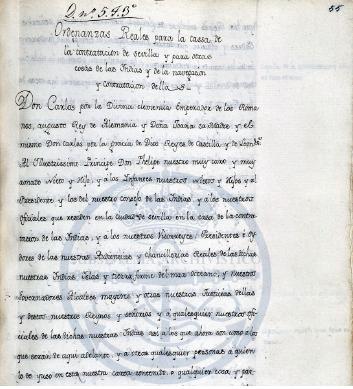 55
Ordenanzas Reales para la cassa de
la contratacion de sevilla y para otras
cosas de las Indias y de la navegacion
y contratacion della
Don Carlos por la Divina clemencia Emperador de los Roma
nos, augusto Rey de Alemania y Doña Joana su Madre y el
mismo Don Carlos por la gracia de Dios Reyes de Castilla y de Leon
Al Illustrissimo Principe Don Phelipe nuestro muy caro y muy
amado Nieto y Hijo, y a los Infantes nuestros Nietos y Hijos y al
Presidente y los del nuestro consejo de las Indias, y a los nuestros
oficiales que residen en la ciudad de sevilla en la casa de la contra
tacion de las Indias, y a los nuestros Visorreyes, Presidentes e Oy
dores de las nuestras Audiencias y chancillerias Reales de las dichas
nuestras Indias Islas y tierra firme del mar oceano, y nuestros
Governadores Alcaldes mayores y otras nuestras Justicias dellas
y destos nuestros Reynos y señorios y a qualesquier nuestros ofi
ciales de las dichas nuestras Indias assi a los que aora son como a los
que seran de aqui adelante y a otras qualesquier personas a quien
lo de yuso en esta nuestra carta contenido o qualquier cosa y par